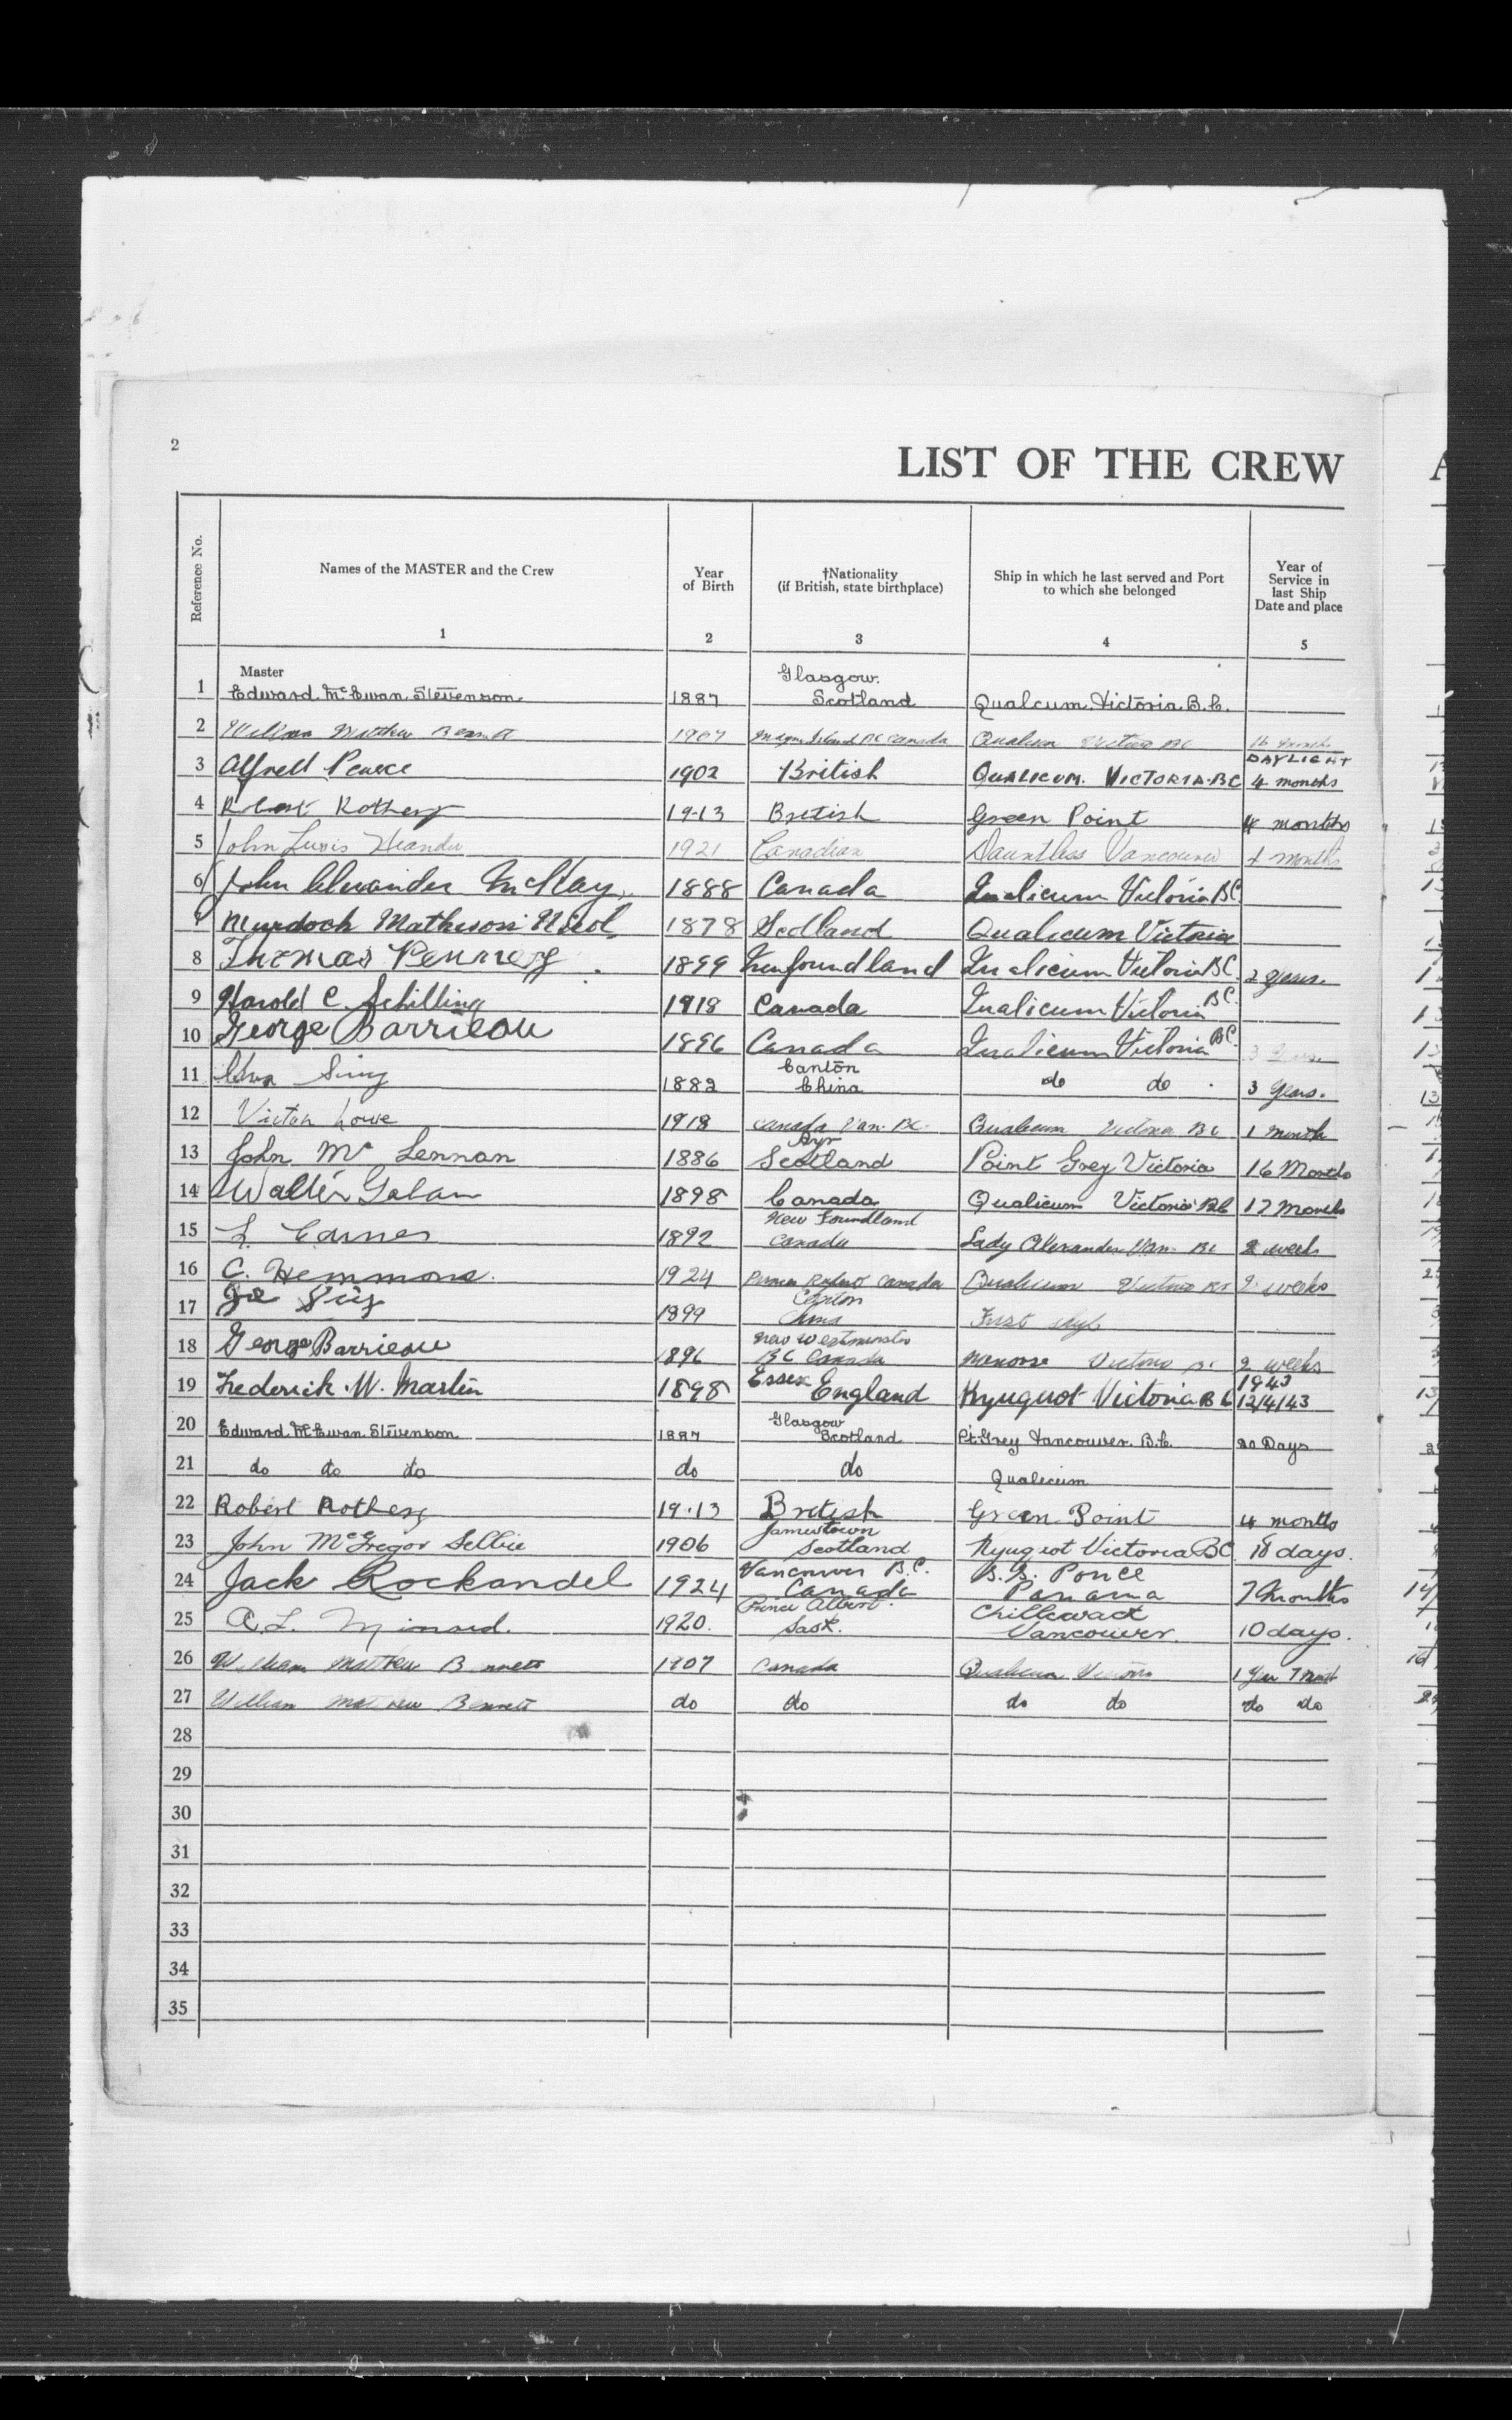 2
LIST OF THE CREW
Reference No.
Names of the MASTER and the Crew
Year of Birth
†Nationality (if British, state birthplace)
Ship in which he last served and Port to which she belonged
Year of Service in last Ship Date and place
1 2 3 4 5
Master
1 Edward McEwan Stevenson 1887 Glasgow. Scotland Qualcum Victoria B.C.
2 William Matthew Bennett 1907 Island BC Canada Qualicum Victoria BC 16 months
3 Alfred Pearce 1902 British QUALICUM. VICTORIA.BC DAYLIGHT 4 months
4 Robert Rothery 19-13 British Green Point 4 months
5 John 1921 Canadian Dauntless Vancouver 4 months
6 John Alexander McKay 1888 Canada Qualicum Victoria BC
7 Murdoch Matheson Nicol 1878 Scotland Qualicum Victoria
8 Thomas Penney 1899 Newfoundland Qualicum Victoria BC. 2 years.
9 Harold C. Schilling 1918 Canada Qualicum Victoria BC.
10 George Barrieau 1896 Canada Qualicum Victoria BC. 3 Years.
11 Sing 1882 Canton China do do 3 Years.
12 Victor Lowe 1918 Canada Van. BC. Qualicum Victoria BC 1 month
13 John Mc Lennan 1886 Ayr Scotland Point Grey Victoria 16 Months
14 Walter 1898 Canada Qualicum Victoria BC 17 Months
15 L. Carnes 1892 New Foundland Canada Lady Alexander Van. BC 2 week
16 C. Hemmons. 1924 Prince Rupert Canada Qualicum Victoria BC 2 weeks
17 1899 Canton China First ship
18 George Barrieau 1896 New Westminster BC Canada Nanoose Victoria BC 2 weeks
19 Frederick W. Martin 1898 Essex England Kyuquot Victoria BC 1943 12/4/43
20 Edward McEwan Stevenson 1887 Glasgow Scotland Pt. Grey Vancouver. B.C. 20 Days
21 do do do do do Qualicum
22 Robert Rothery 19.13 British Green Point 4 months
23 John McGregor Selbie 1906 Jamestown Scotland Kyuquot Victoria BC 18 days.
24 Jack Rockandel 1924 Vancouver B.C. Canada S.S. Ponce Panama 7 months
25 A.L. Minard. 1920. Prince Albert. Sask. Chillewack Vancouver. 10 days.
26 William Matthew Bennett 1907 Canada Qualicum Victoria 1 Year 7 Month
27 William Matthew Bennett do do do do do do
28
29
30
31
32
33
34
35